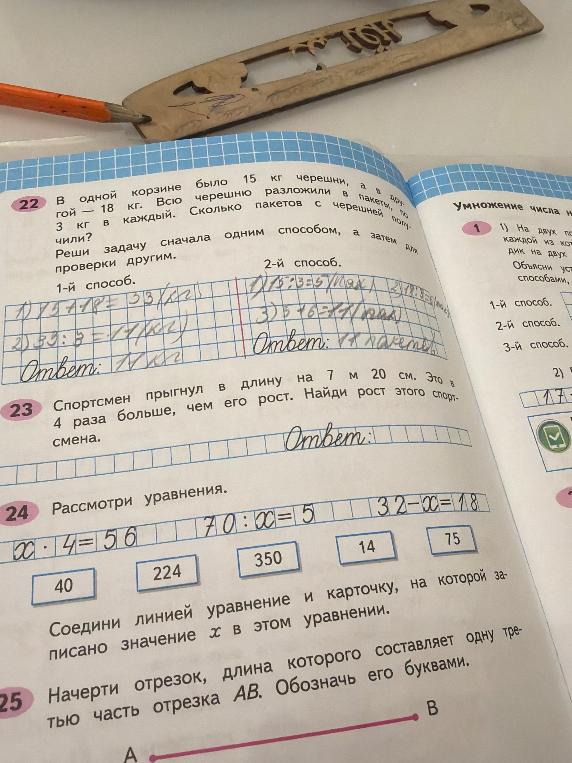 22 В одной корзине было 15 кг черешни, а в дру-
гой — 18 кг. Всю черешню разложили в пакеты, по
3 кг в каждый. Сколько пакетов с черешней полу-
чили?
Реши задачу сначала одним способом, а затем для
проверки другим.
1-й способ.
2-й способ.
1) 15+18=33(кг)
2) 33:3=11(кг)
Ответ: 11 кг
1) 15:3=5(пак)
3) 5+6=11(пак)
Ответ: 11 пакетов
23 Спортсмен прыгнул в длину на 7 м 20 см. Это в
4 раза больше, чем его рост. Найди рост этого спорт-
смена.
Ответ:
24 Рассмотри уравнения.
x · 4 = 56 70 : x = 5 32 − x = 18
40 224 350 14 75
Соедини линией уравнение и карточку, на которой за-
писано значение x в этом уравнении.
25 Начерти отрезок, длина которого составляет одну тре-
тью часть отрезка АВ. Обозначь его буквами.
А В
Умножение числа
1 1) На двух
каждой из
дик на двух
Объясни
способами,
1-й способ.
2-й способ.
3-й способ.
2)
17